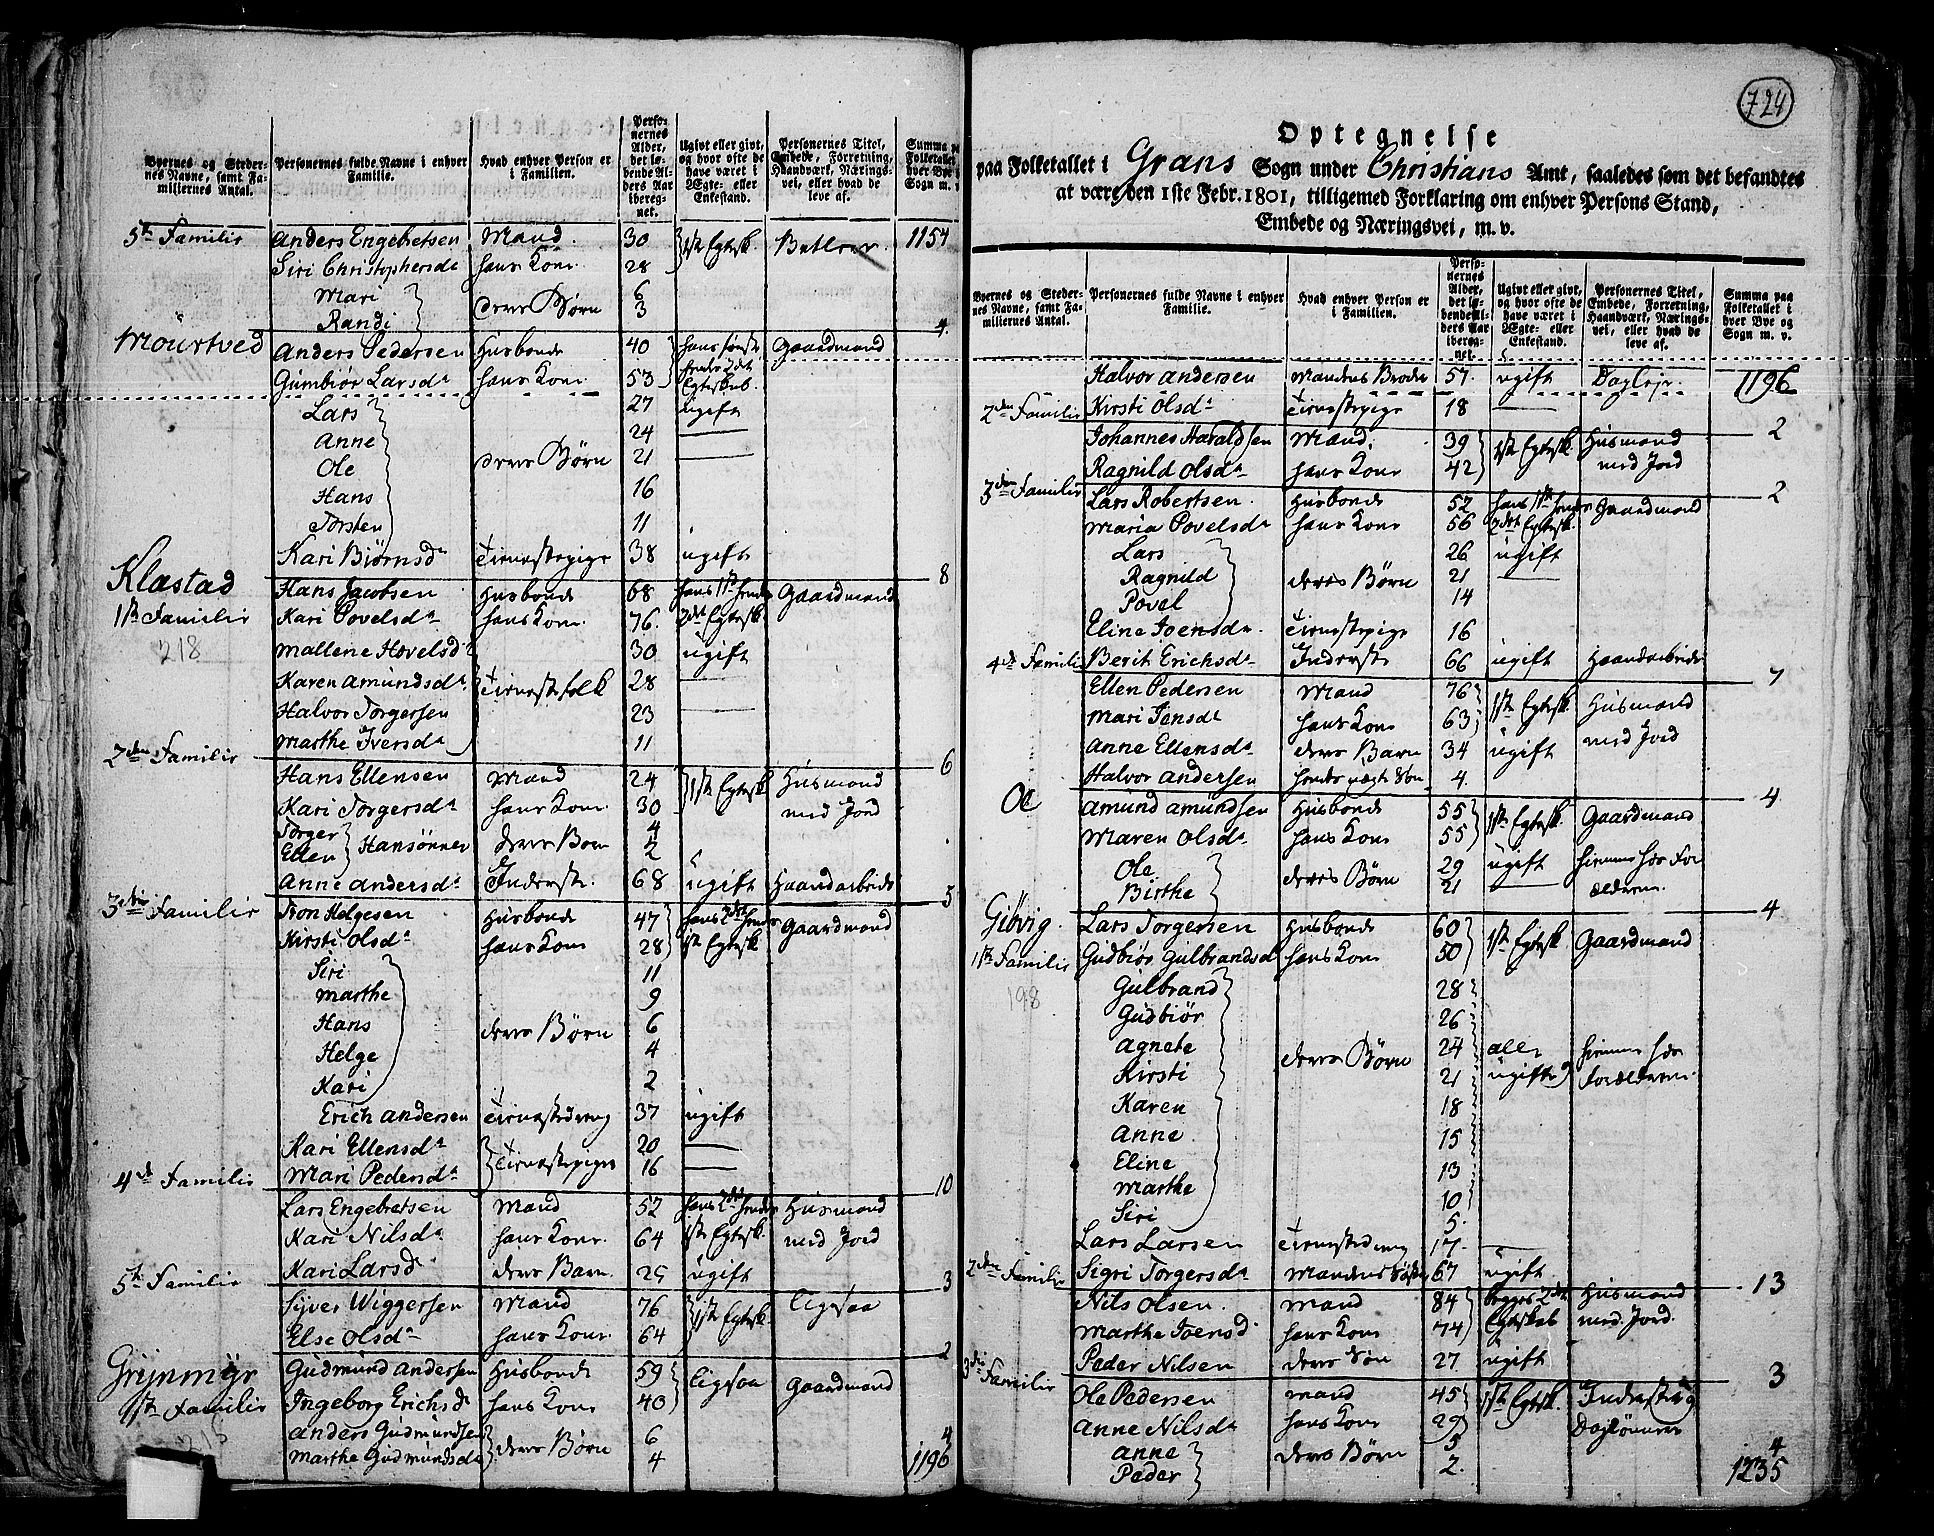 Byernes og Steder-
nes Navne, samt Fa-
miliernes Antal.
Personernes fulde Navne i enhver
Familie.
Hvad enhver Person er
i Familien.
Perso-
nernes
Alder,
det lø-
bende Al-
ders Aar
iberegnet.
Ugivt eller givt,
og hvor ofte de
have været i
Ægte- eller
Enkestand.
Personernes Titel,
Embede, Forretning,
Haandværk, Nærings-
vei, eller hvad de
leve af.
Summa paa
Folketallet i
hver Bye og
Sogn m. v.
5te Familie Anders Engebretsen Mand 30 1ste Egtesk. 1154
Siri Christophersdr hans Kone 28
Mari 6
Randi deres Børn 3
4
Mourtved Anders Pedersen Husbonde 40 hans første Gaardmand
Gumbiør Larsdr hans Kone 53 hendes 2det Egteskab.
Lars 27 ugift
Anne 24
Ole deres Børn 21
Hans 16
Torsten 11
Kari Biørnsdr Tienestepige 38 ugift
8
Klæstad Hans Jacobsen Husbonde 68 hans 1ste hendes Gaardmand
1ste Familie Kari Povelsdr hans Kone 76 2det Egtesk.
218
Mallene Hovelsdr 30 ugift
Karen Amundsdr Tienestefolk 28
Halvor Torgersen 23
Marthe Iversdr 11
6
2den Familie Hans Ellensen Mand 24 1ste Egtesk. Husmand
Kari Torgersdr hans Kone 30 med Jord
Torger 4
Ellen Hansønner deres Børn 2
Anne Andersdr Inderste 68 ugift Haandarbeide
5
3die Familie Tron Helgesen Husbonde 47 hans 2det hendes Gaardmand
Kirsti Olsdr hans Kone 28 1ste Egtesk.
Siri 11
Marthe 9
Hans deres Børn 6
Helge 4
Kari 2
Erich Andersen Tienestedreng 37 ugift
Kari Ellensdr 20
Mari Pedersdr Tienestepiger 16
10
4de Familie Lars Engebretsen Mand 52 hans 2det hendes Husmand
Kari Nilsdr hans Kone 64 1ste Egtesk. med Jord
Kari Larsdr deres Barn 25 ugift
3
5te Familie Syver Wiggersen Mand 76 1ste Egtesk. Ligesaa
Else Olsdr hans Kone 64
2
Grijnmyr Gudmund Andersen Husbonde 59 Ligesaa Gaardmand
1ste Familie Ingeborg Erichsdr hans Kone 40
Anders Gudmundsen 6
Marthe Gudmundsdr deres Børn 4
4
1196
724
Optegnelse
paa Folketallet i Grans Sogn under Christians Amt, saaledes som det befandtes
at være den 1ste Febr. 1801, tilligemed Forklaring om enhver Persons Stand,
Embede og Næringsvei, m. v.
Byernes og Steder-
nes Navne, samt Fa-
miliernes Antal.
Personernes fulde Navne i enhver
Familie.
Hvad enhver Person er
i Familien.
Perso-
nernes
Alder,
det lø-
bende Al-
ders Aar
iberegnet.
Ugivt eller givt,
og hvor ofte de
have været i
Ægte- eller
Enkestand.
Personernes Titel,
Embede, Forretning,
Haandværk, Nærings-
vei, eller hvad de
leve af.
Summa paa
Folketallet i
hver Bye og
Sogn m. v.
Halvor Andersen Mandens Broder 57 ugift Daglejr. 1196
Kirsti Olsdr Tienestepige 18
2
2den Familie Johannes Haraldsen Mand 39 1ste Egtesk. Husmand
Ragnild Olsdr hans Kone 42 med Jord
2
3die Familie Lars Robertsen Husbonde 52 hans 1ste hendes Gaardmand
Maria Povelsdr hans Kone 56 2det Egtesk.
Lars 26 ugift
Ragnild deres Børn 21
Povel 14
Eline Joensdr Tienestepige 16
Berit Erichsdr Inderste 66 ugift Haandarbeide
7
4de Familie Ellen Pedersen Mand 76 1ste Egtesk. Husmand
Mari Jensdr hans Kone 63 med Jord
Anne Ellensdr deres Barn 34 ugift
Halvor Andersen hendes uægte Søn 4
4
Oe Amund Amundsen Husbonde 55 1ste Egtesk. Gaardmand
Maren Olsdr hans Kone 55
Ole 29 ugift hiemme hos For-
Birthe deres Børn 21 ældrene
4
Giövig Lars Torgersen Husbonde 60 1ste Egtesk. Gaardmand
1ste Familie Gudbiør Gulbrandsdr hans Kone 50
198
Gulbrand 28
Gudbiør 26
Agnete 24 alle hiemme hos
Kirsti deres Børn 21 ugifte Forældrene
Karen 18
Anne 15
Eline 13
Marthe 10
Siri 5
Lars Larsen Tienestedreng 17
Sigri Torgersdr Mandens Søster 67 ugift
13
2den Familie Nils Olsen Mand 84 begges 2det Husmand
Marthe Joensd hans Kone 74 Egteskab med Jord
Peder Nilsen deres Søn 27 ugift
3
3die Familie Ole Pedersen Mand 45 1ste Egtesk. Inderst og
Anne Nilsdr hans Kone 29 Daglønner
Anne 5
Peder deres Børn 2
4
1235